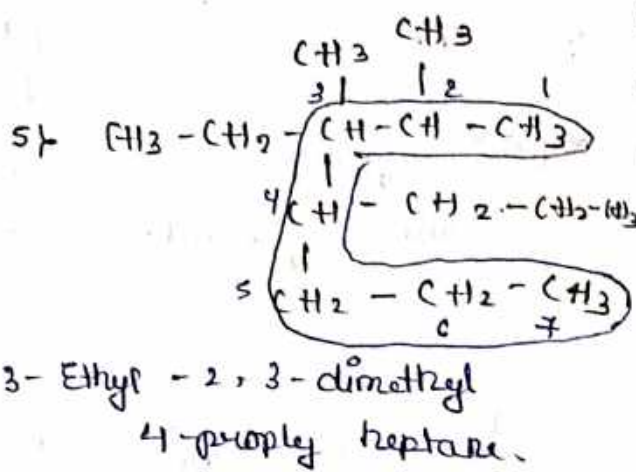 CH3 CH3
3 | | 2 1
5} CH3 - CH2 - CH - CH - CH3
|
4 CH - CH2 - CH2 - CH3
|
5 CH2 - CH2 - CH3
6 7
3- Ethyl - 2, 3 - dimethyl
4-proply heptane.